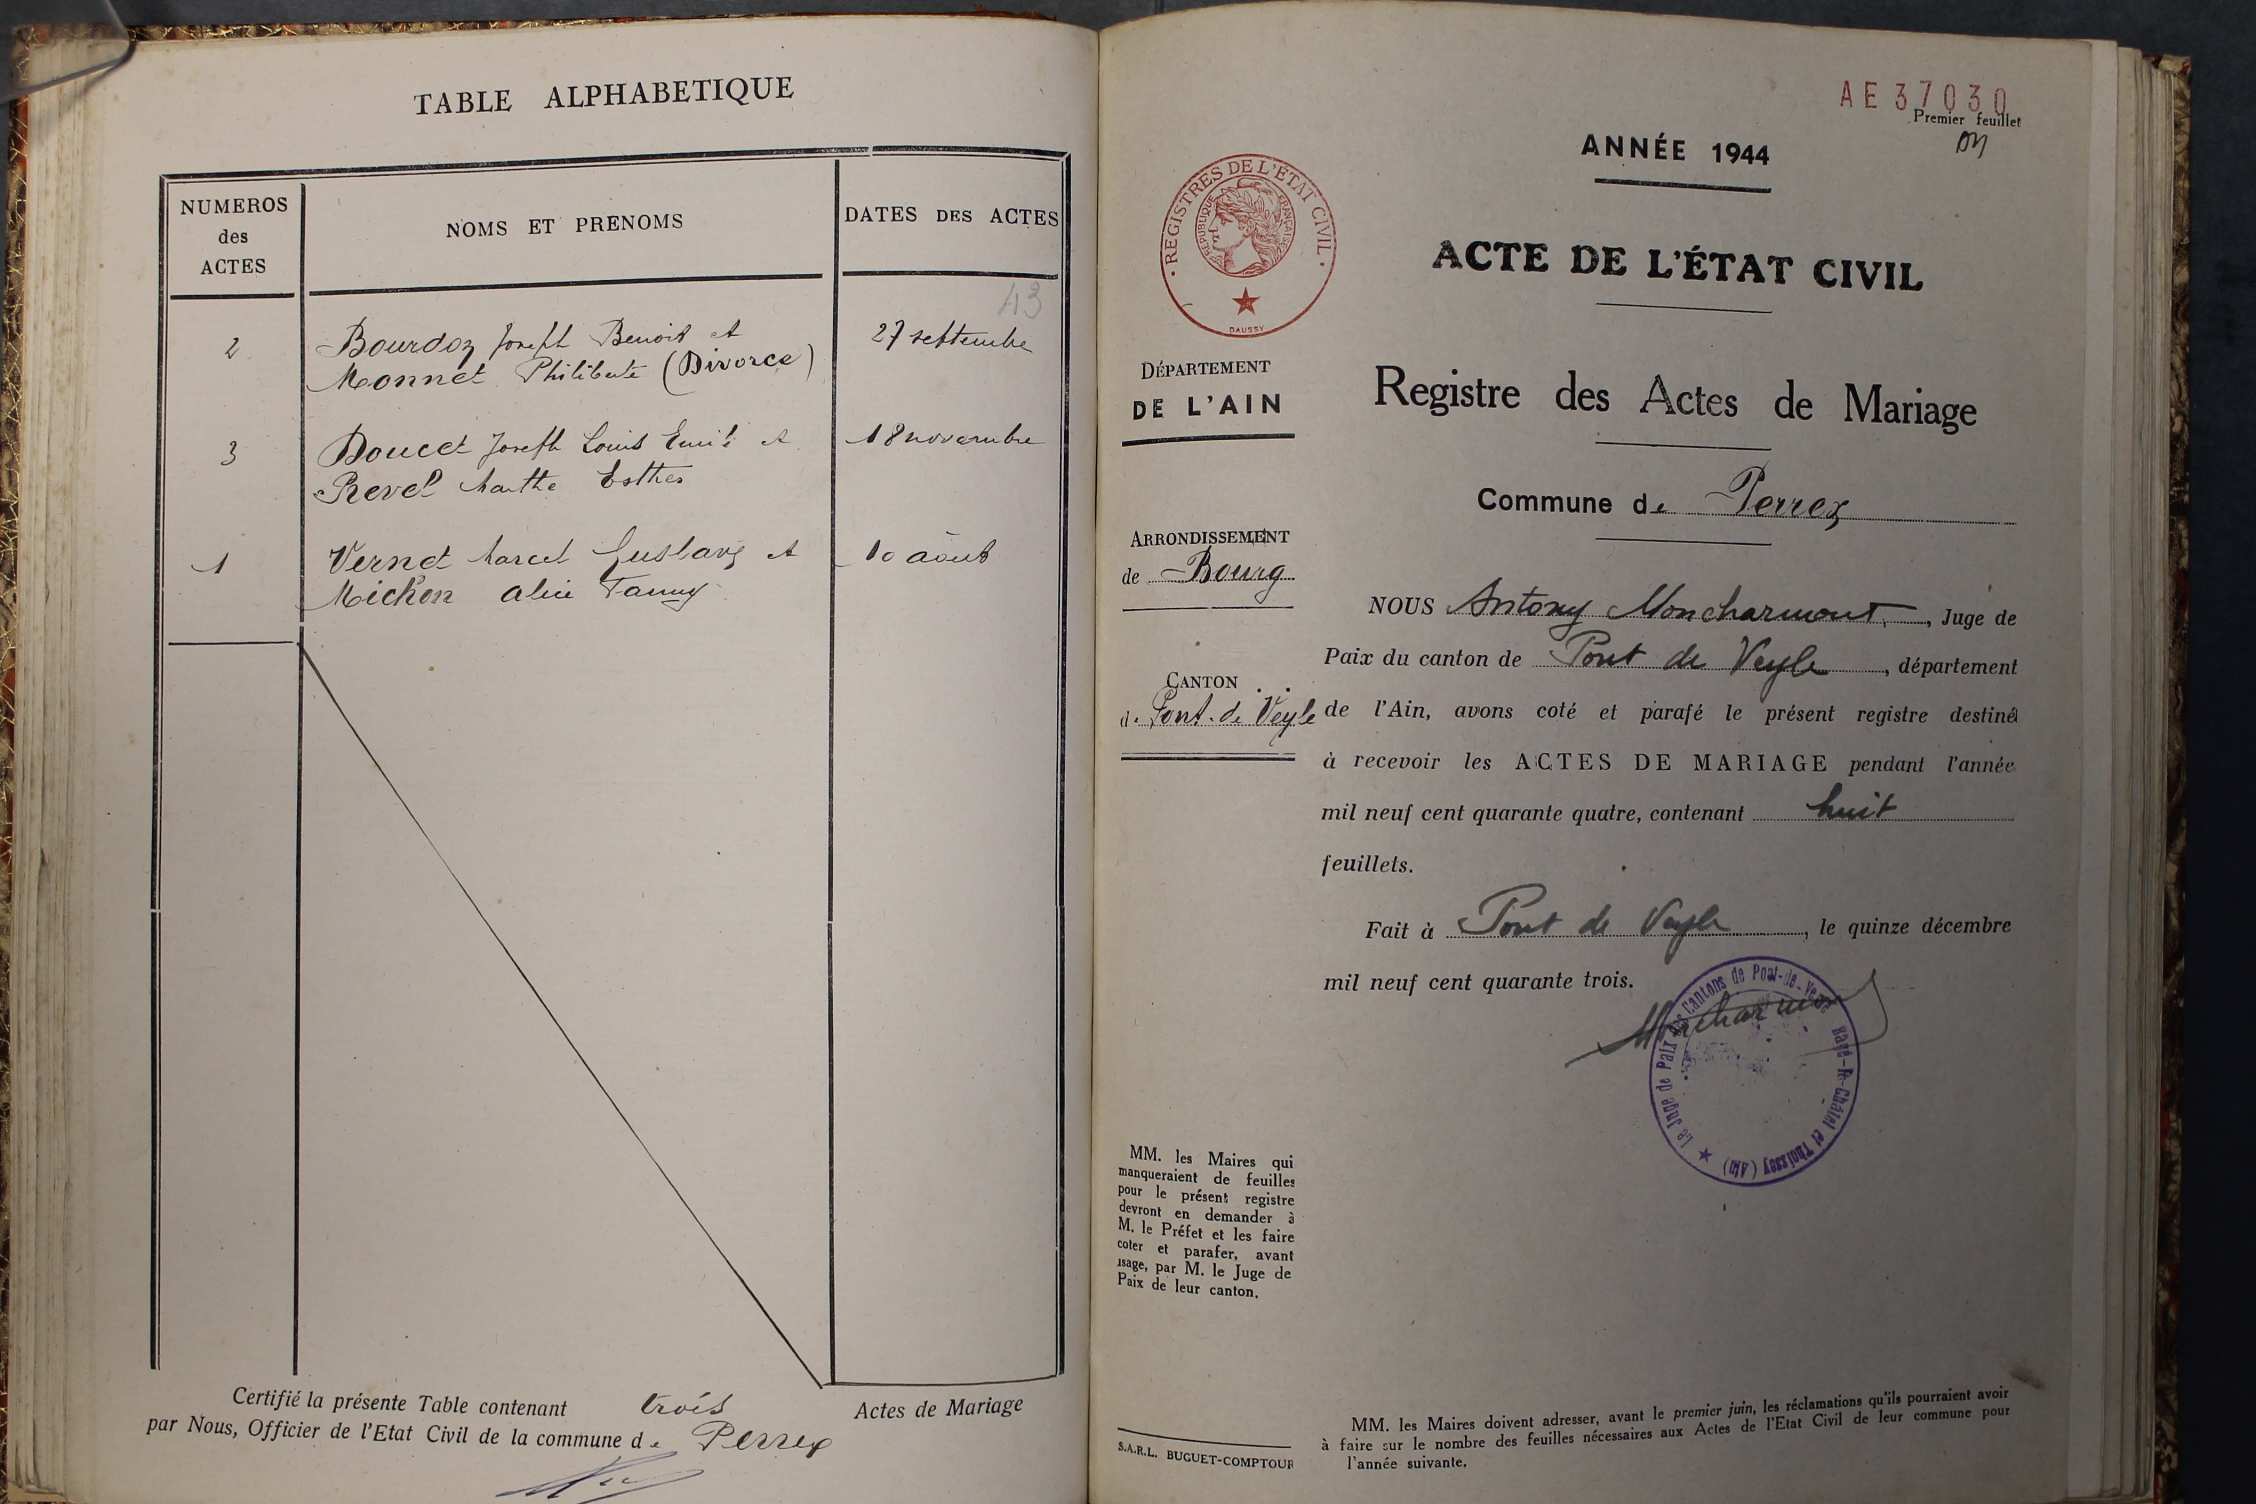 TABLE ALPHABETIQUE
NUMEROS
des
ACTES
NOMS ET PRENOMS
DATES DES ACTES
43
2
Bourdoz Joseph Benoit et
Monnet Philiberte (Divorce)
27 septembre
3
Doucet Joseph Louis Emile et
Revel Marthe Esther
18 novembre
1
Vernet Marcel Gustave et
Michon Alice Fanny
10 août
Certifié la présente Table contenant trois Actes de Mariage
par Nous, Officier de l'Etat Civil de la commune de Perrex
AE37030
Premier feuillet
ANNÉE 1944
REGISTRES DE L'ETAT CIVIL
REPUBLIQUE FRANÇAISE
DAUSSY
ACTE DE L'ÉTAT CIVIL
Registre des Actes de Mariage
Commune de Perrex
DÉPARTEMENT
DE L'AIN
ARRONDISSEMENT
de Bourg
CANTON
de Pont-de-Veyle
NOUS Antony Moncharmont, Juge de
Paix du canton de Pont de Veyle, département
de l'Ain, avons coté et parafé le présent registre destiné
à recevoir les ACTES DE MARIAGE pendant l'année
mil neuf cent quarante quatre, contenant huit
feuillets.
Fait à Pont de Veyle, le quinze décembre
mil neuf cent quarante trois.
Moncharmont
Le Juge de Paix des Cantons de Pont-de-Veyle Bagé-le-Châtel et Thoissey (Ain)
MM. les Maires qui
manqueraient de feuilles
pour le présent registre
devront en demander à
M. le Préfet et les faire
coter et parafer, avant
usage, par M. le Juge de
Paix de leur canton.
S.A.R.L. BUGUET-COMPTOUR
MM. les Maires doivent adresser, avant le premier juin, les réclamations qu'ils pourraient avoir
à faire sur le nombre des feuilles nécessaires aux Actes de l'Etat Civil de leur commune pour
l'année suivante.